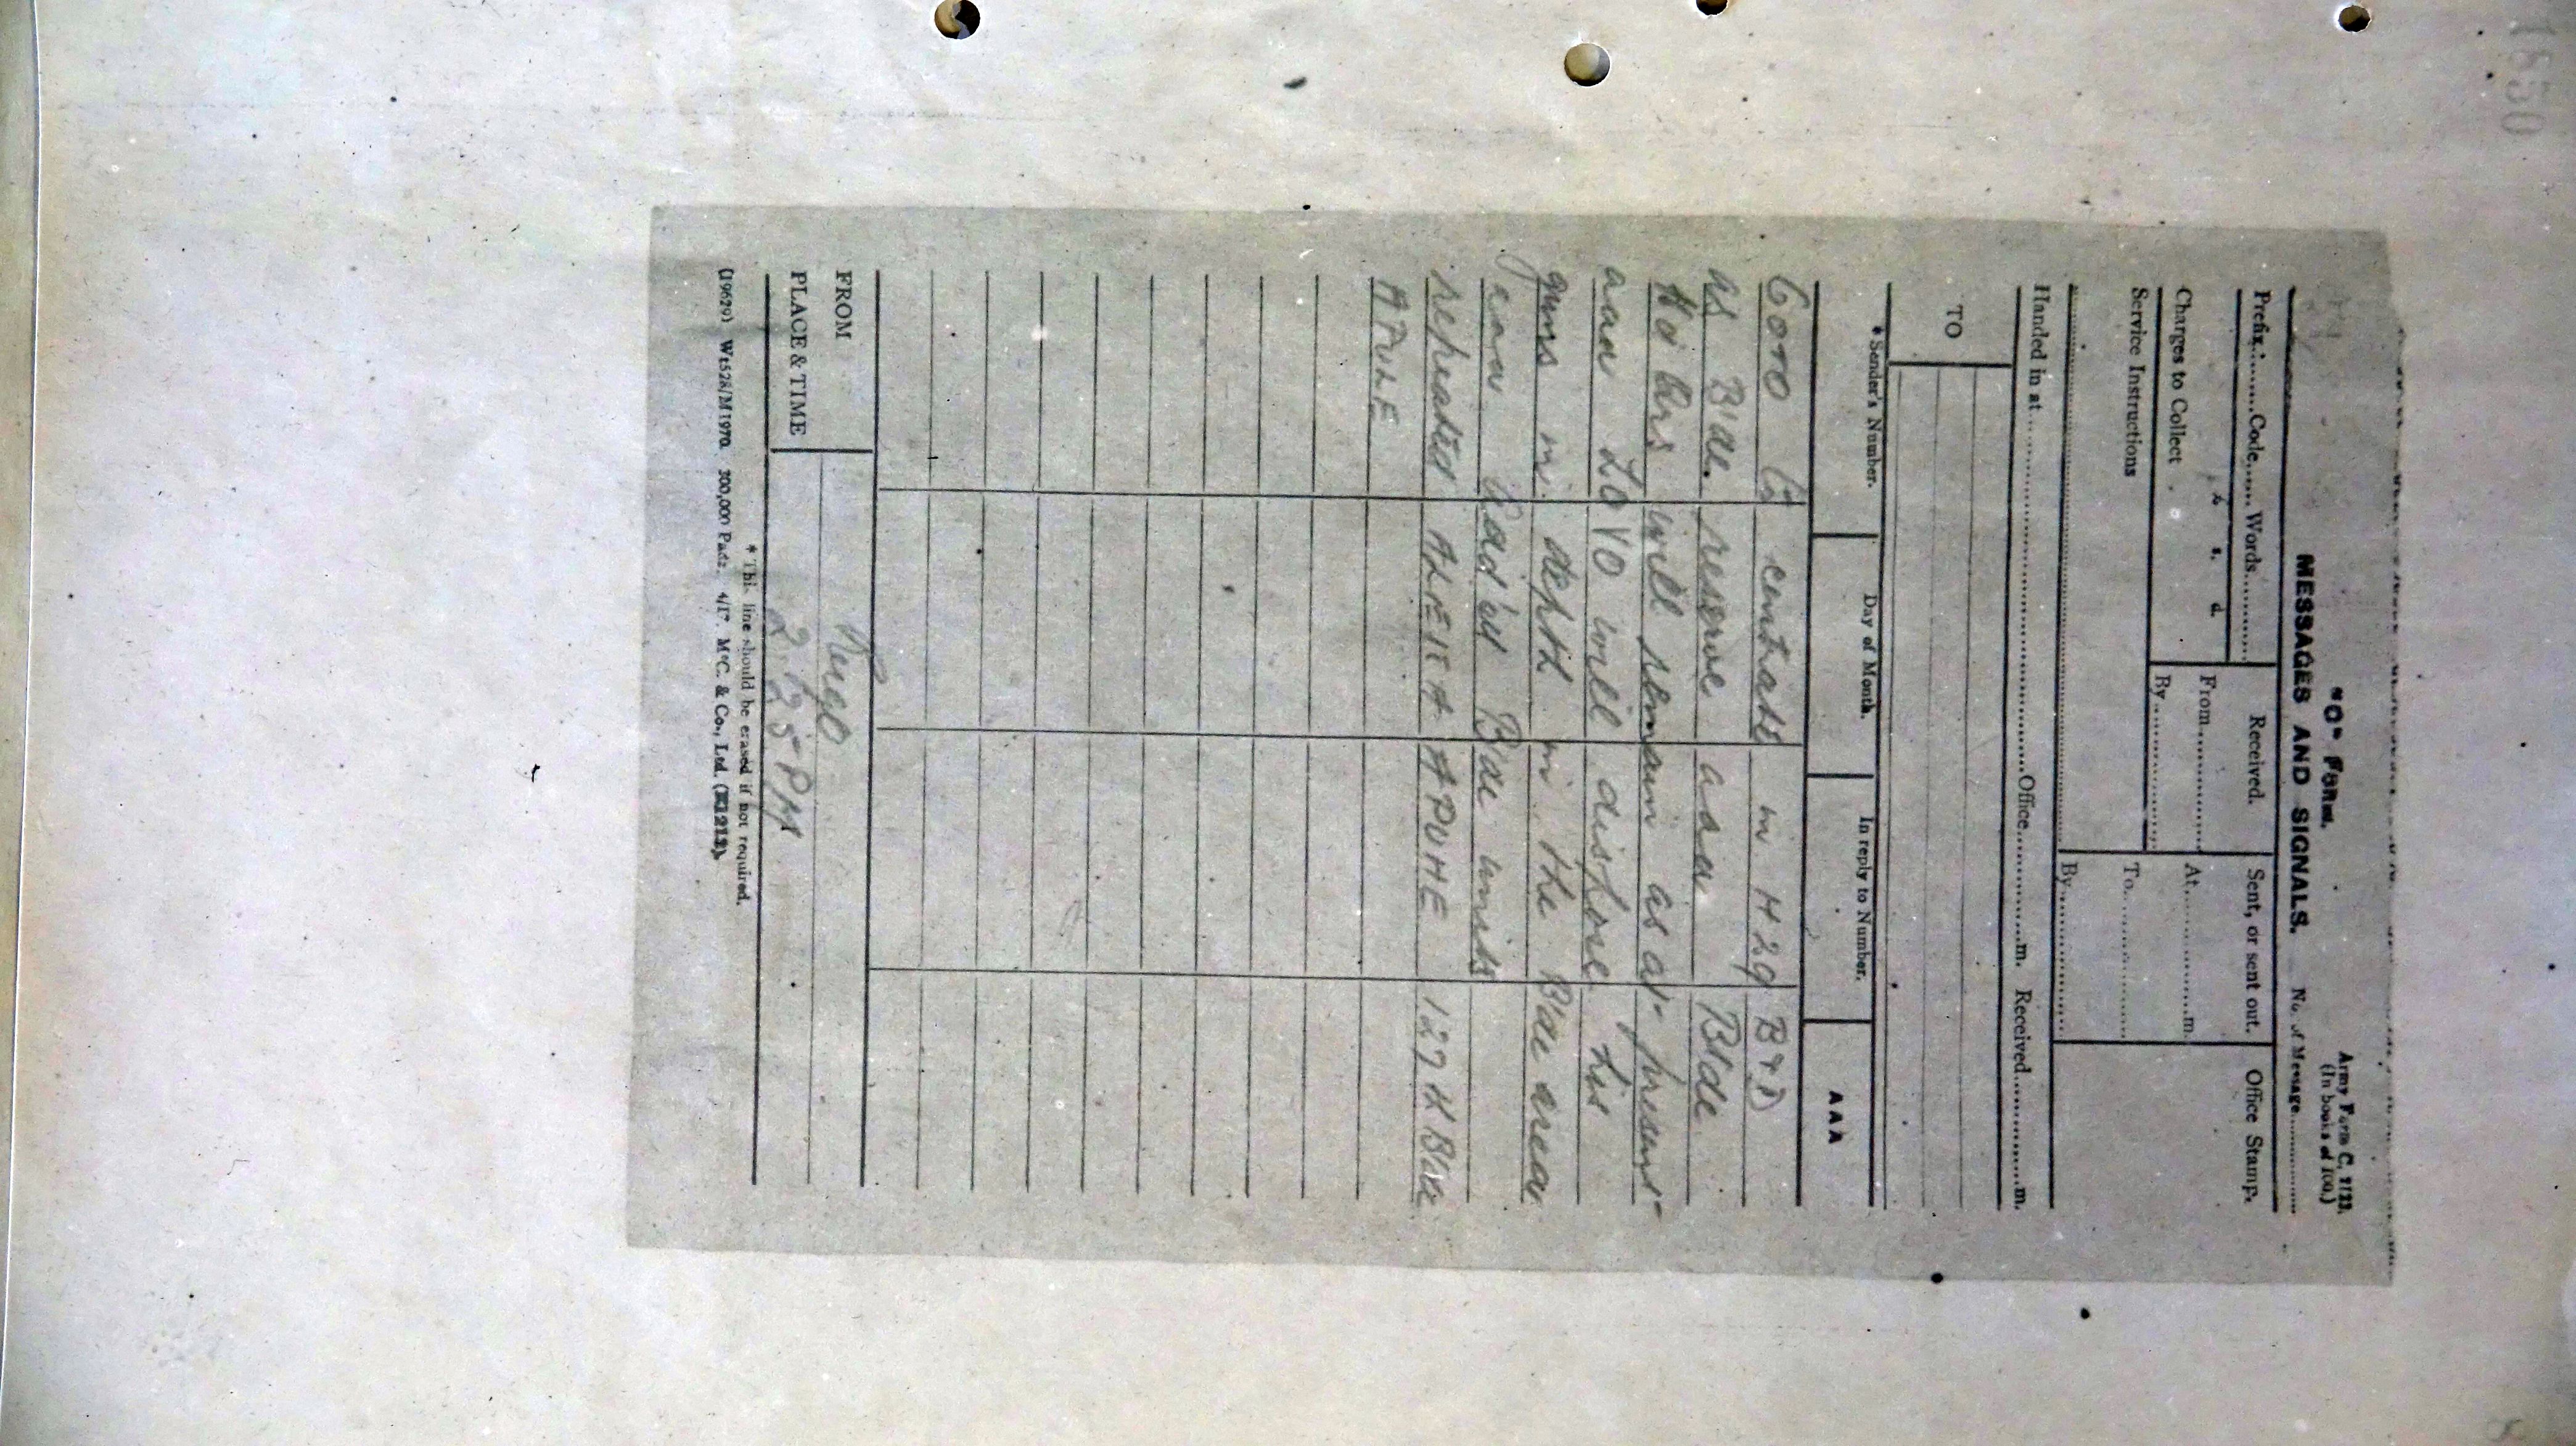 1650
"O" Form.
Army Form C. 2123.
(In books of 100.)
MESSAGES AND SIGNALS. No. of Message............
Prefix............Code......Words............
Received.
Sent, or sent out.
Office Stamp.
£ s. d.
From............
At............m.
Charges to Collect
By............
To............
Service Instructions
By............
Handed in at............Office............m. Received............m.
TO
* Sender's Number.
Day of Month.
In reply to Number.
AAA
GORO to centrate in H 29 B & D
as B'de. reserve aaa B'de
Hd Qrs will remain as at present
aaa LOVO will dispose his
guns in depth in the B'de area
aaa Add'all B'de units
repeated APUHE 127th B'de
APULE
FROM
PLACE & TIME
2.25 PM
* This line should be erased if not required.
(19629) Wt528/M1970. 300,000 Pads. 4/17. McC. & Co., Ltd. (E1213).